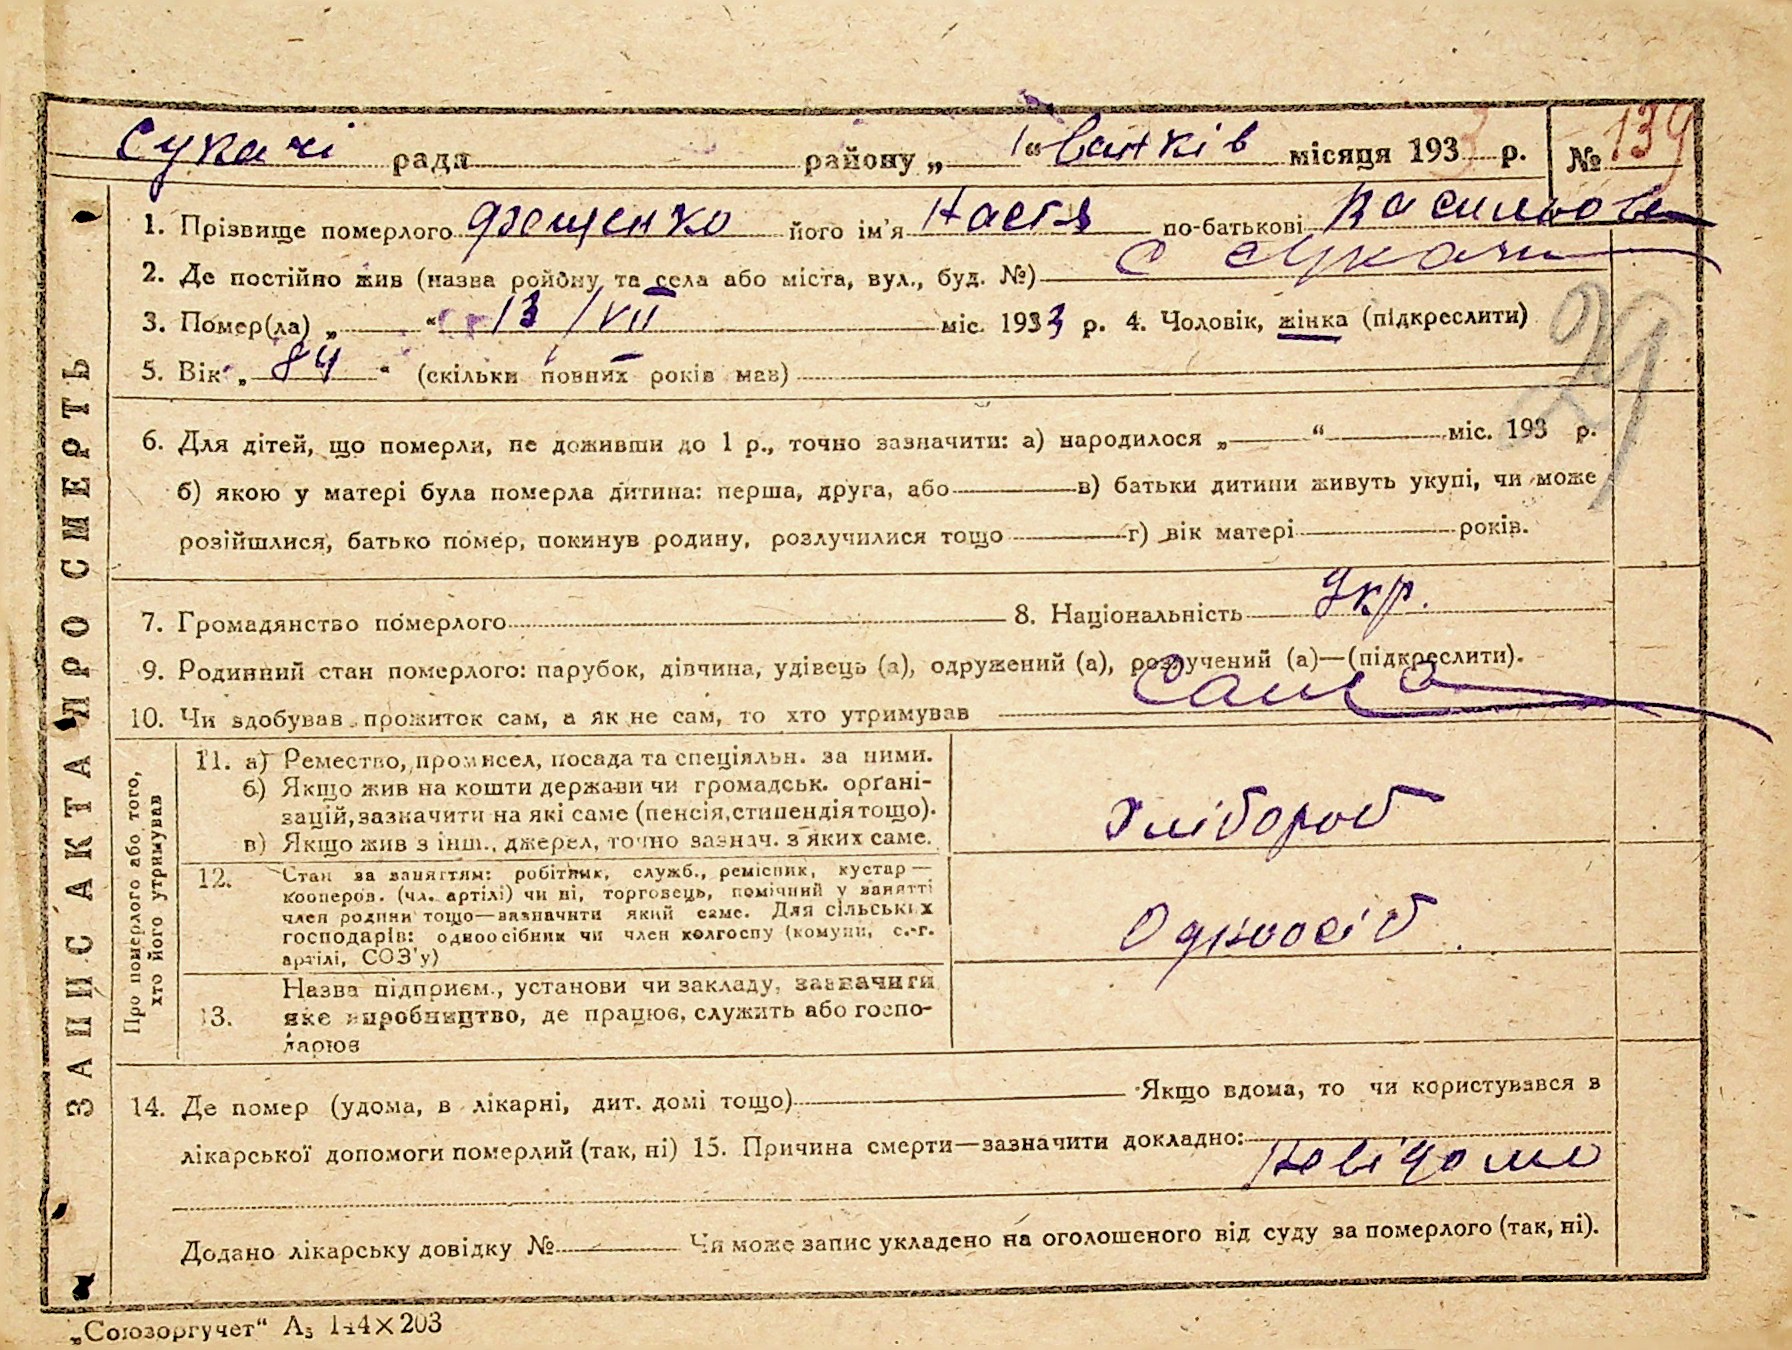 Сукачі рада району „ “ Іванків місяця 1933 р. № 139
1. Прізвище померлого Фещенко його ім'я Настя по-батькові Васильов
2. Де постійно жив (назва ройону та села або міста, вул., буд. №) С Сукачи
3. Помер(ла) „ “ 13/VII міс. 1933 р. 4. Чоловік, жінка (підкреслити)
5. Вік „ 84 “ (скільки повних років мав)
29
6. Для дітей, що померли, не доживши до 1 р., точно зазначити: а) народилося „ “ міс. 193 р.
б) якою у матері була померла дитина: перша, друга, або в) батьки дитини живуть укупі, чи може
розійшлися, батько помер, покинув родину, розлучилися тощо г) вік матері років.
7. Громадянство померлого 8. Національність Укр.
9. Родинний стан померлого: парубок, дівчина, удівець (а), одружений (а), розлучений (а)—(підкреслити).
10. Чи здобував прожиток сам, а як не сам, то хто утримував Сама
ЗАПИС АКТА ПРО СМЕРТЬ
Про померлого або того,
хто його утримував
11. а) Ремество, промисел, посада та спеціяльн. за ними.
б) Якщо жив на кошти держави чи громадськ. орґані-
зацій, зазначити на які саме (пенсія, стипендія тощо).
в) Якщо жив з інш., джерел, точно зазнач. з яких саме.
Хлібороб
12. Стан за заняттям: робітник, служб., ремісник, кустар—
кооперов. (чл. артілі) чи ні, торговець, помічний у занятті
член родини тощо—зазначити який саме. Для сільських
господарів: одноосібник чи член колгоспу (комуни, с.-г.
артілі, СОЗ'у)
Одноосіб.
13. Назва підприєм., установи чи закладу, зазначити
яке виробництво, де працює, служить або госпо-
дарює
14. Де помер (удома, в лікарні, дит. домі тощо) Якщо вдома, то чи користувався в
лікарської допомоги померлий (так, ні) 15. Причина смерти—зазначити докладно:
Невідомо
Додано лікарську довідку № Чи може запис укладено на оголошеного від суду за померлого (так, ні).
„Союзоргучет“ А₅ 144×203